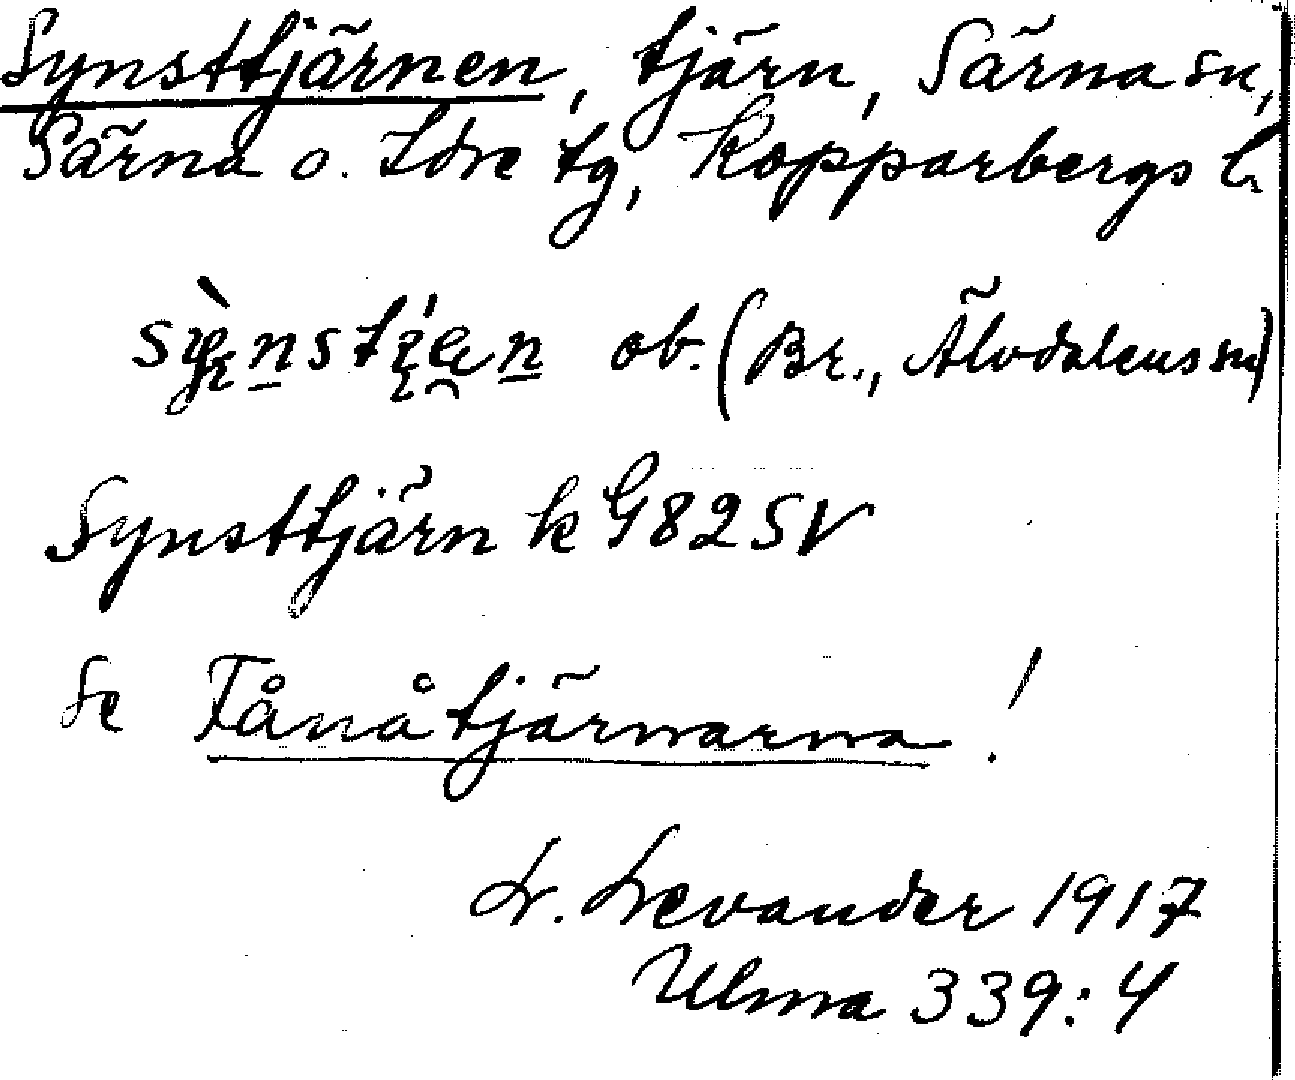 Synsttjärnen, tjärn, Särna sn,
Särna o. Idre tg, Kopparbergs l.
ob. (Br., Älvdalens sn)
Synsttjärn k G82SV
Se Tånåtjärnarna!
L. Levander 1917
Ulma 339:4